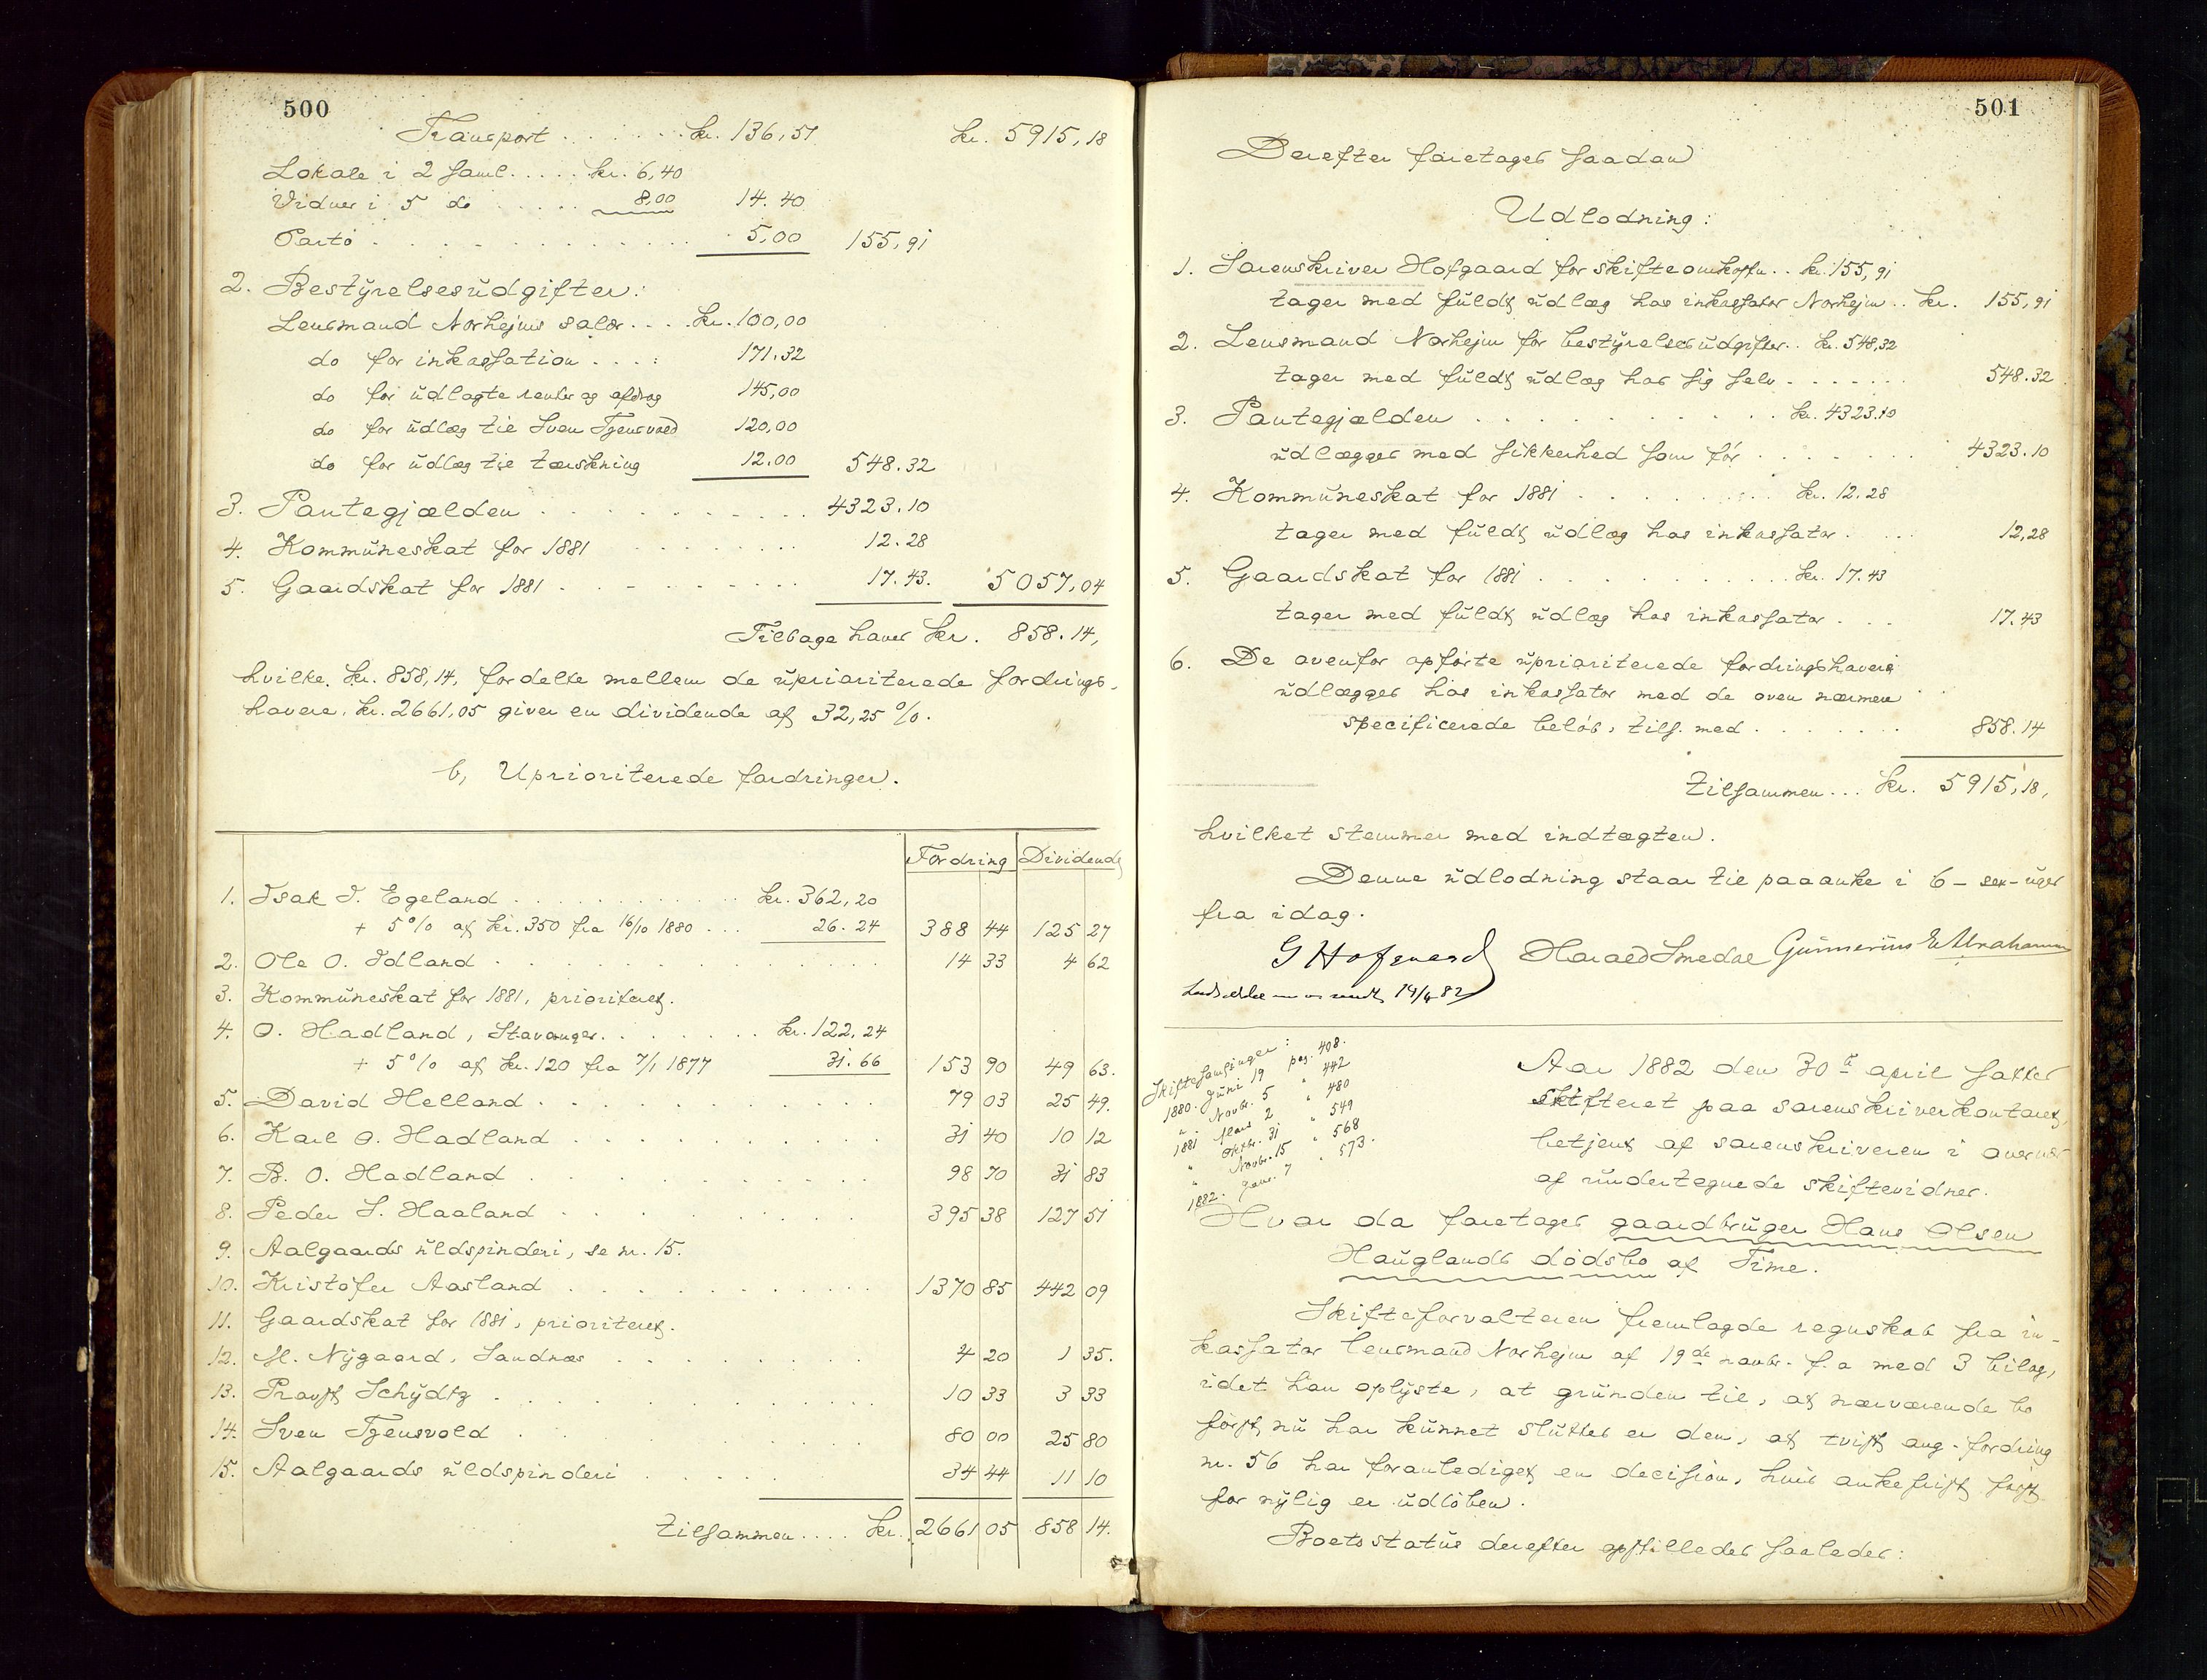 500
Transport . . . . . . kr. 136,51 kr. 5915,18
Lokale i 2 saml. . . . . kr. 6,40
Vidner i 5 do . . . . . 8,00 14.40
Porto . . . . . . . . . . . . 5,00 155,91
2. Bestyrelsesudgifter:
Lensmand Norhejms salær . . . kr. 100,00
do for inkassation . . . : 171.32
do for udlagte renter og afdrag 145,00
do for udlæg til Sven Tjensvold 120,00
do for udlæg til tærskning 12.00 548.32
3. Pantegjælden . . . . . . . . . . 4323.10
4. Kommuneskat for 1881 . . . . . . . . 12.28
5. Gaardskat for 1881 . . . . . . . . . 17.43. 5057,04
Tilbage haves kr. 858.14,
hvilke kr. 858,14, fordelte mellem de uprioriterede fordrings-
havere, kr. 2661,05 giver en dividende af 32,25 %.
b, Uprioriterede fordringer.
Fordring Dividende
1. Isak I. Egeland . . . . . . . . . . . kr. 362,20
+ 5% af kr. 350 fra 16/10 1880 . . . 26.24 388 44 125 27
2. Ole O. Idland . . . . . . . . . . . 14 33 4 62
3. Kommuneskat for 1881, prioriteret.
4. O. Hadland, Stavanger. . . . . . . kr. 122,24
+ 5% af kr. 120 fra 7/1 1877 31.66 153 90 49 63.
5. David Helland . . . . . . . . . . . 79 03 25 49.
6. Karl O. Hadland . . . . . . . . . . 31 40 10 12
7. B. O. Hadland . . . . . . . . . . . 98 70 31 83
8. Peder S. Haaland . . . . . . . . . 395 38 127 51
9. Aalgaards uldspinderi, se nr. 15.
10. Kristofer Aasland . . . . . . . . . 1370 85 442 09
11. Gaardskat for 1881, prioriteret.
12. M. Nygaard, Sandnæs . . . . . . . . 4 20 1 35.
13. Provst Schydtz . . . . . . . . . . 10 33 3 33
14. Sven Tjensvold . . . . . . . . . . 80 00 25 80
15. Aalgaards uldspinderi . . . . . 34 44 11 10
tilsammen . . . . kr. 2661 05 858 14.
501
Derefter foretages saadan
Udlodning:
1. Sorenskriver Hofgaard for skifteomkostn. . . kr. 155,91
tager med fuldt udlæg hos inkassator Norhejm . . kr. 155,91
2. Lensmand Norhejm for bestyrelsesudgifter . . kr. 548,32
tager med fuldt udlæg hos sig selv . . . . . . . 548.32
3. Pantegjælden . . . . . . . . . . . kr. 4323.10
udlægges med sikkerhed som før . . . . . . . 4323.10
4. Kommuneskat for 1881 . . . . . . . kr. 12.28
tager med fuldt udlæg hos inkassator . . . 12,28
5. Gaardskat for 1881 . . . . . . . . . . kr. 17.43
tager med fuldt udlæg hos inkassator . . . 17.43
6. De ovenfor opførte uprioriterede fordringshavere
udlægges hos inkassator med de oven nærmere
specificerede beløb, tils. med . . . . . . . 858.14
tilsammen . . . kr. 5915,18,
hvilket stemmer med indtægten.
Denne udlodning staar til paaanke i 6 – sex – uger
fra idag.
G Hofgaard Harald Smedal Gunnerius E Abraham
14/4 82
Skiftesamlinger:
1880. Juni 19 pag. 408.
" Novbr. 5 " 442
1881 Mars 2 " 480
" Oktbr. 31 " 549
" Novbr. 15 " 568
1882. Janr. 7 " 573.
Aar 1882 den 30te april sattes
skifteret paa sorenskriverkontoret,
betjent af sorenskriveren i overvær
af undertegnede skiftevidner.
Hvor da foretages gaardbruger Hans Olsen
Hauglands dødsbo af Time.
Skifteforvalteren fremlagde regnskab fra in-
kassator lensmand Norhejm af 19de novbr. f.a med 3 bilag,
idet han oplyste, at grunden til, at nærværende bo
først nu har kunnet sluttes er den, at tvist ang. fordring
nr. 56 har foranlediget en decision, hvis ankefrist først
for nylig er udløben.
Boets status derefter opstilledes saaledes: